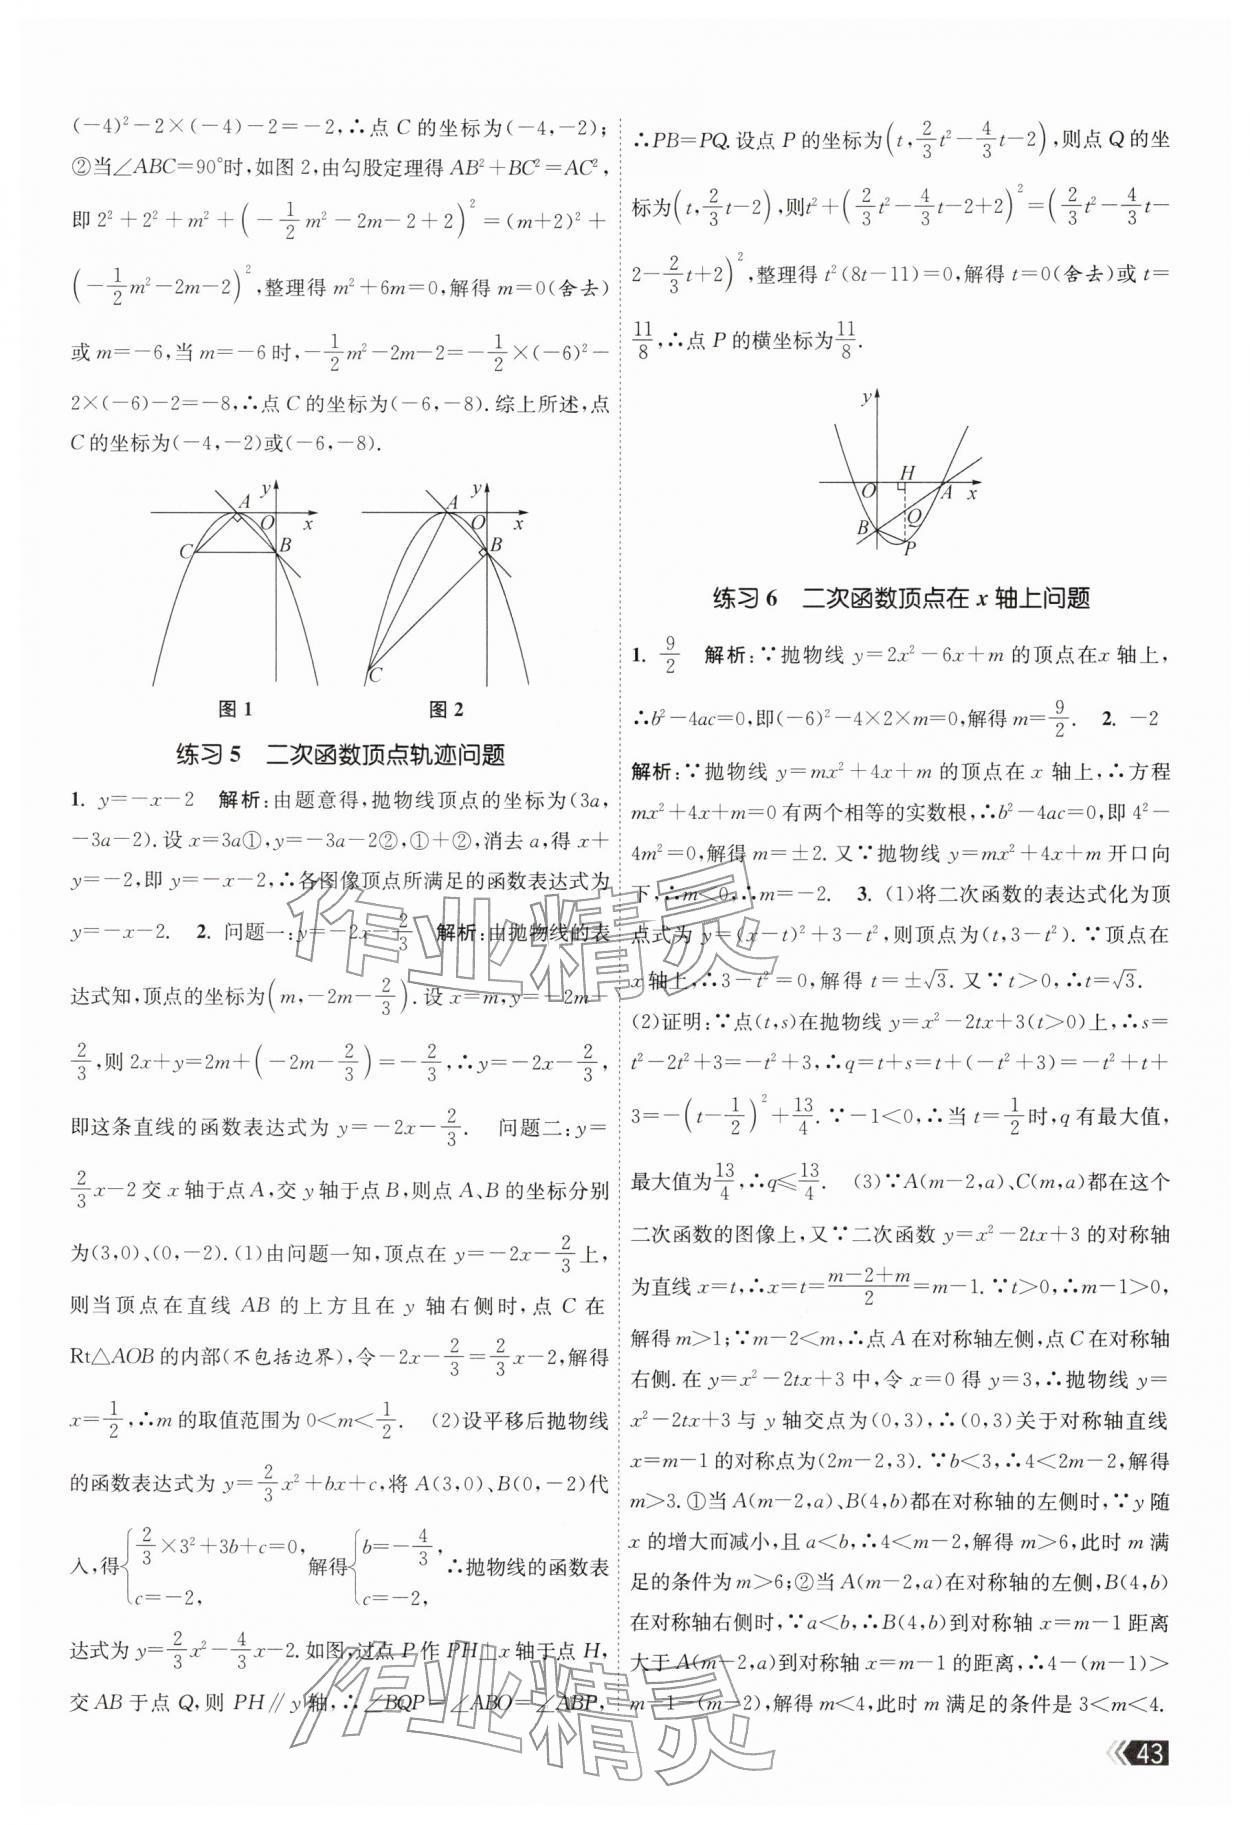 (-4)²-2×(-4)-2=-2,∴点 C 的坐标为(-4,-2);
②当∠ABC=90°时,如图 2,由勾股定理得 AB²+BC²=AC²,
即 2²+2²+m²+(-1/2m²-2m-2+2)²=(m+2)²+
(-1/2m²-2m-2)²,整理得 m²+6m=0,解得 m=0(舍去)
或 m=-6,当 m=-6 时,-1/2m²-2m-2=-1/2×(-6)²-
2×(-6)-2=-8,∴点 C 的坐标为(-6,-8).综上所述,点
C 的坐标为(-4,-2)或(-6,-8).
A y O x C B
A y O x B C
图 1 图 2
练习 5 二次函数顶点轨迹问题
1. y=-x-2 解析:由题意得,抛物线顶点的坐标为(3a,
-3a-2).设 x=3a①,y=-3a-2②,①+②,消去 a,得 x+
y=-2,即 y=-x-2,∴各图像顶点所满足的函数表达式为
y=-x-2. 2. 问题一:y=-2x-2/3 解析:由抛物线的表
达式知,顶点的坐标为(m,-2m-2/3).设 x=m,y=-2m-
2/3,则 2x+y=2m+(-2m-2/3)=-2/3,∴y=-2x-2/3,
即这条直线的函数表达式为 y=-2x-2/3. 问题二:y=
2/3x-2 交 x 轴于点 A,交 y 轴于点 B,则点 A、B 的坐标分别
为(3,0)、(0,-2).(1)由问题一知,顶点在 y=-2x-2/3上,
则当顶点在直线 AB 的上方且在 y 轴右侧时,点 C 在
Rt△AOB 的内部(不包括边界),令-2x-2/3=2/3x-2,解得
x=1/2,∴m 的取值范围为 0<m<1/2. (2)设平移后抛物线
的函数表达式为 y=2/3x²+bx+c,将 A(3,0)、B(0,-2)代
入,得{2/3×3²+3b+c=0, c=-2, 解得{b=-4/3, c=-2, ∴抛物线的函数表
达式为 y=2/3x²-4/3x-2.如图,过点 P 作 PH⊥x 轴于点 H,
交 AB 于点 Q,则 PH∥y 轴,∴∠BQP=∠ABO=∠ABP,
∴PB=PQ.设点 P 的坐标为(t,2/3t²-4/3t-2),则点 Q 的坐
标为(t,2/3t-2),则t²+(2/3t²-4/3t-2+2)²=(2/3t²-4/3t-
2-2/3t+2)²,整理得 t²(8t-11)=0,解得 t=0(舍去)或 t=
11/8,∴点 P 的横坐标为11/8.
y H O A x B Q P
练习 6 二次函数顶点在 x 轴上问题
1. 9/2 解析:∵抛物线 y=2x²-6x+m 的顶点在x 轴上,
∴b²-4ac=0,即(-6)²-4×2×m=0,解得 m=9/2. 2. -2
解析:∵抛物线 y=mx²+4x+m 的顶点在 x 轴上,∴方程
mx²+4x+m=0 有两个相等的实数根,∴b²-4ac=0,即 4²-
4m²=0,解得 m=±2.又∵抛物线 y=mx²+4x+m 开口向
下,∴m<0,∴m=-2. 3. (1)将二次函数的表达式化为顶
点式为 y=(x-t)²+3-t²,则顶点为(t,3-t²).∵顶点在
x 轴上,∴3-t²=0,解得 t=±√3. 又∵t>0,∴t=√3.
(2)证明:∵点(t,s)在抛物线 y=x²-2tx+3(t>0)上,∴s=
t²-2t²+3=-t²+3,∴q=t+s=t+(-t²+3)=-t²+t+
3=-(t-1/2)²+13/4.∵-1<0,∴当 t=1/2时,q 有最大值,
最大值为13/4,∴q≤13/4. (3)∵A(m-2,a)、C(m,a)都在这个
二次函数的图像上,又∵二次函数 y=x²-2tx+3 的对称轴
为直线 x=t,∴x=t=(m-2+m)/2=m-1.∵t>0,∴m-1>0,
解得 m>1;∵m-2<m,∴点 A 在对称轴左侧,点 C 在对称轴
右侧.在 y=x²-2tx+3 中,令 x=0 得 y=3,∴抛物线 y=
x²-2tx+3 与 y 轴交点为(0,3),∴(0,3)关于对称轴直线
x=m-1 的对称点为(2m-2,3).∵b<3,∴4<2m-2,解得
m>3.①当 A(m-2,a)、B(4,b)都在对称轴的左侧时,∵y 随
x 的增大而减小,且 a<b,∴4<m-2,解得 m>6,此时 m 满
足的条件为 m>6;②当 A(m-2,a)在对称轴的左侧,B(4,b)
在对称轴右侧时,∵a<b,∴B(4,b)到对称轴 x=m-1 距离
大于 A(m-2,a)到对称轴 x=m-1 的距离,∴4-(m-1)>
m-1-(m-2),解得 m<4,此时 m 满足的条件是 3<m<4.
作业精灵
作业精灵
43